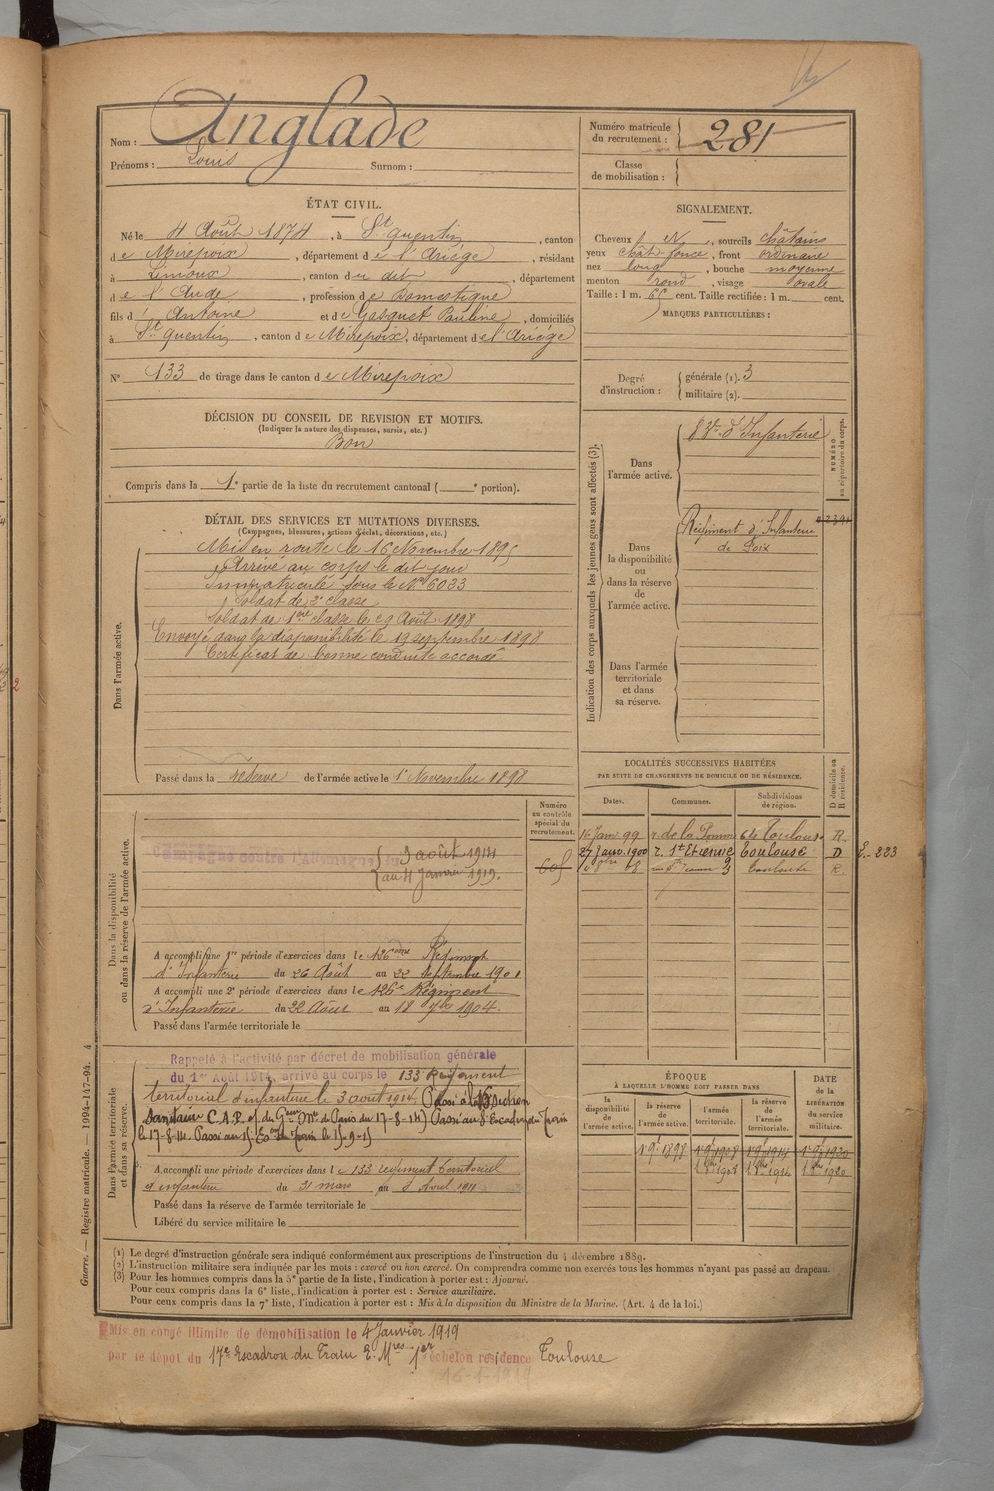 Nom : Anglade
Prénoms : Louis Surnom :
Numéro matricule du recrutement : 281
Classe de mobilisation :
ÉTAT CIVIL.
Né le 4 Août 1874, à St quentin, canton
de Mirepoix, département de l'Ariége, résidant
à Limoux, canton du dit, département
de l'Aude, profession de Domestique
fils d' Antoine et de Gasquet Pauline, domiciliés
à St quentin, canton de Mirepoix, département de l'Ariége
N° 133 de tirage dans le canton de Mirepoix
SIGNALEMENT.
Cheveux et, sourcils châtains
yeux chât. foncé, front ordinaire
nez long, bouche moyenne
menton rond, visage ovale
Taille : 1 m. 65 cent. Taille rectifiée : 1 m. cent.
MARQUES PARTICULIÈRES :
Degré d'instruction : générale (1). 3
militaire (2).
DÉCISION DU CONSEIL DE REVISION ET MOTIFS.
(Indiquer la nature des dispenses, sursis, etc.)
Bon
Compris dans la 1e partie de la liste du recrutement cantonal ( e portion).
DÉTAIL DES SERVICES ET MUTATIONS DIVERSES.
(Campagnes, blessures, actions d'éclat, décorations, etc.)
Dans l'armée active.
Mis en route le 16 Novembre 1895
Arrivé au corps le dit jour
Immatriculé sous le N° 6033
Soldat de 2e classe
Soldat de 1ère classe le 29 Août 1898
Envoyé dans la disponibilité le 19 septembre 1898
Certificat de bonne conduite accordé
Passé dans la réserve de l'armée active le 1er Novembre 1898
Indication des corps auxquels les jeunes gens sont affectés (3).
NUMÉRO au répertoire du corps.
Dans l'armée active.
d'Infanterie
Dans la disponibilité ou dans la réserve de l'armée active.
Régiment d'Infanterie
de Foix
Dans l'armée territoriale et dans sa réserve.
LOCALITÉS SUCCESSIVES HABITÉES
PAR SUITE DE CHANGEMENTS DE DOMICILE OU DE RÉSIDENCE.
D domicile ou R résidence.
Dates. Communes. Subdivisions de région.
16 Janv. 99 r. de la Pomme 64 Toulouse R.
27 Janv. 1900 r. St Etienne 9 Toulouse D E. 223
Toulouse R.
Dans la disponibilité ou dans la réserve de l'armée active.
Numéro au contrôle spécial du recrutement.
605
Campagne contre l'Allemagne du 3 août 1914
au 4 Janvier 1919.
A accompli une 1re période d'exercices dans le 126ème Régiment
d'Infanterie du 26 Août au 22 septembre 1901
A accompli une 2e période d'exercices dans le 126e Régiment
d'Infanterie du 22 Août au 18 7bre 1904.
Passé dans l'armée territoriale le
Dans l'armée territoriale et dans sa réserve.
Rappelé à l'activité par décret de mobilisation générale
du 1er Août 1914, arrivé au corps le 133e Régiment
territorial d'infanterie le 3 août 1914. Passé à la Section
le 17-8-14. Passé au
A accompli une période d'exercices dans le 133 régiment territorial
d'infanterie du 31 mars au 8 Avril 1911
Passé dans la réserve de l'armée territoriale le
Libéré du service militaire le
ÉPOQUE
À LAQUELLE L'HOMME DOIT PASSER DANS
DATE de la LIBÉRATION du service militaire.
la disponibilité de l'armée active. la réserve de l'armée active. l'armée territoriale. la réserve de l'armée territoriale.
(1) Le degré d'instruction générale sera indiqué conformément aux prescriptions de l'instruction du 4 décembre 1889.
(2) L'instruction militaire sera indiquée par les mots : exercé ou non exercé. On comprendra comme non exercés tous les hommes n'ayant pas passé au drapeau.
(3) Pour les hommes compris dans la 5e partie de la liste, l'indication à porter est : Ajourné.
Pour ceux compris dans la 6e liste, l'indication à porter est : Service auxiliaire.
Pour ceux compris dans la 7e liste, l'indication à porter est : Mis à la disposition du Ministre de la Marine. (Art. 4 de la loi.)
Guerre. — Registre matricule. — 1994-147-94. 4
Mis en congé illimité de démobilisation le 4 Janvier 1919
par le dépôt du 17e Escadron du Train E. Mres 1er échelon résidence Toulouse
16-1-1919